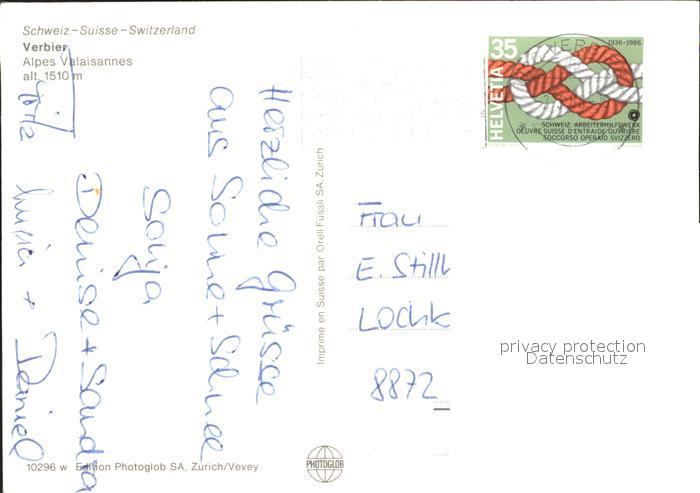 Schweiz - Suisse - Switzerland
Verbier
Alpes Valaisannes
alt. 1510 m
Herzliche Grüsse
aus Sonne + Schnee
Sonja
Denise + Sandra
+ Daniel
Imprimé en Suisse par Orell Füssli SA, Zurich
10296 w Edition Photoglob SA, Zurich/Vevey
PHOTOGLOB
35
1936-1986
HELVETIA
SCHWEIZ. ARBEITERHILFSWERK
OEUVRE SUISSE D'ENTRAIDE OUVRIÈRE
SOCCORSO OPERAIO SVIZZERO
Frau
E. Still
Lochk
8872
privacy protection
Datenschutz